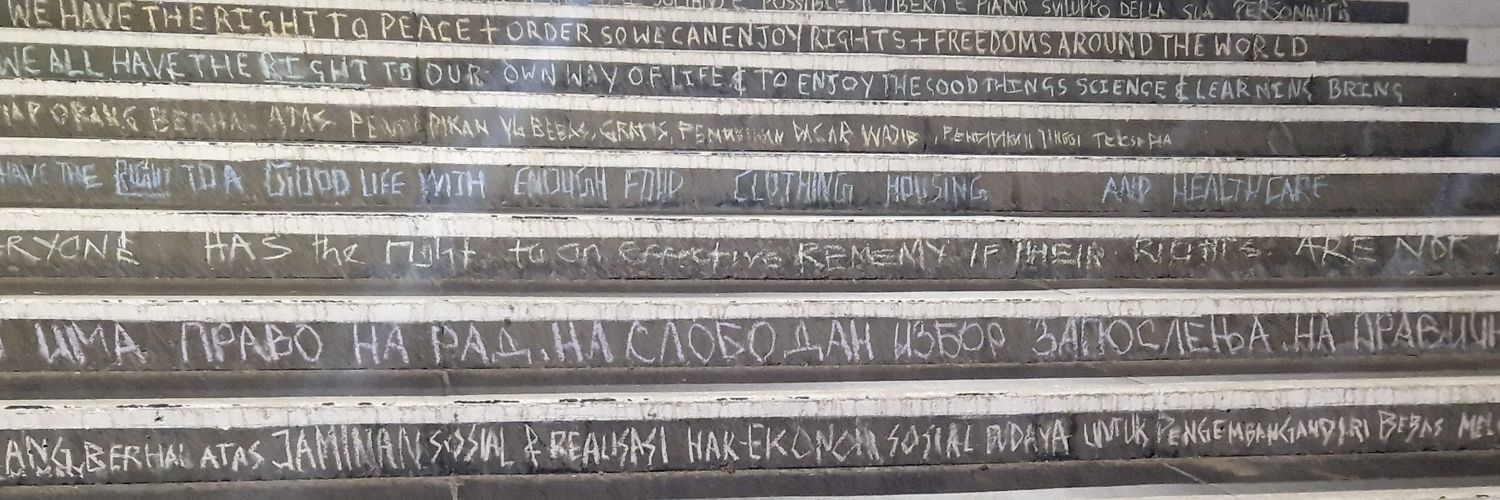 POSSIBLE IL LIBERO E PIANO SVILUPPO DELLA SUA PERSONALITÀ
WE HAVE THE RIGHT TO PEACE + ORDER SO WE CAN ENJOY RIGHTS + FREEDOMS AROUND THE WORLD
WE ALL HAVE THE RIGHT TO OUR OWN WAY OF LIFE & TO ENJOY THE GOOD THINGS SCIENCE & LEARNING BRING
ORANG BERHAK ATAS PENDIDIKAN YG BEBAS, GRATIS, PENDIDIKAN DASAR WAJIB, PENDIDIKAN TINGGI
HAVE THE RIGHT TO A GOOD LIFE WITH ENOUGH FOOD CLOTHING HOUSING AND HEALTH CARE
RYONE HAS the Right to an effective REMEMY IF THEIR RIGHTS ARE NOT
ИМА ПРАВО НА РАД, НА СЛОБОДАН ИЗБОР ЗАПОСЛЕЊА, НА ПРАВИЧН
ANG BERHAK ATAS JAMINAN SOSIAL & REALISASI HAK-EKONOMI SOSIAL BUDAYA UNTUK PENGEMBANGAN DIRI BEBAS MEL